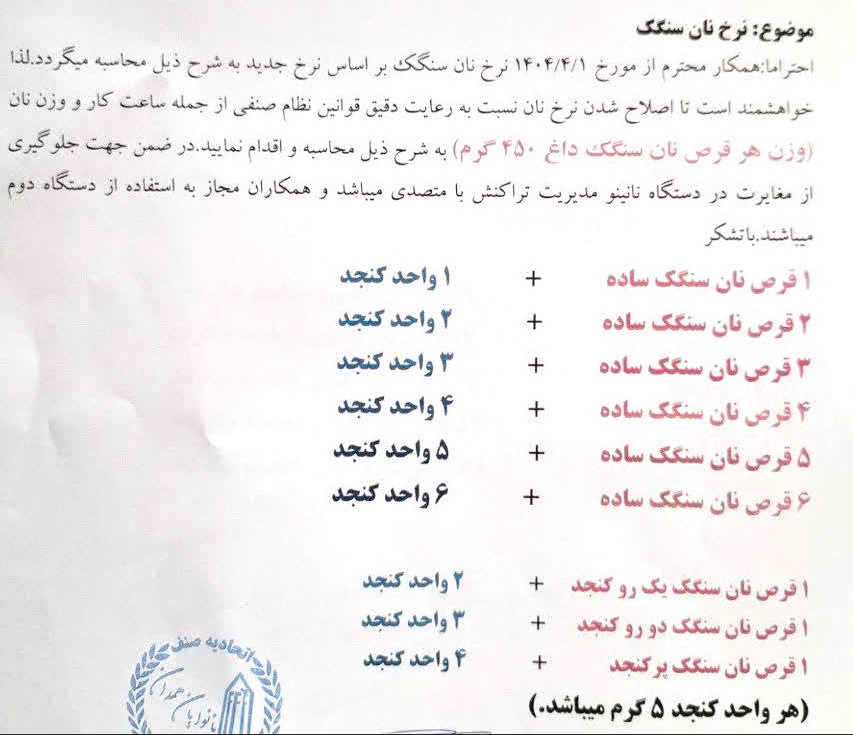 موضوع: نرخ نان سنگک
احتراما:همکار محترم از مورخ ۱۴۰۴/۴/۱ نرخ نان سنگک بر اساس نرخ جدید به شرح ذیل محاسبه میگردد.لذا
خواهشمند است تا اصلاح شدن نرخ نان نسبت به رعایت دقیق قوانین نظام صنفی از جمله ساعت کار و وزن نان
(وزن هر قرص نان سنگک داغ ۴۵۰ گرم) به شرح ذیل محاسبه و اقدام نمایید.در ضمن جهت جلوگیری
از مغایرت در دستگاه نانینو مدیریت تراکنش با متصدی میباشد و همکاران مجاز به استفاده از دستگاه دوم
میباشند.باتشکر
۱ قرص نان سنگک ساده + ۱ واحد کنجد
۲ قرص نان سنگک ساده + ۲ واحد کنجد
۳ قرص نان سنگک ساده + ۳ واحد کنجد
۴ قرص نان سنگک ساده + ۴ واحد کنجد
۵ قرص نان سنگک ساده + ۵ واحد کنجد
۶ قرص نان سنگک ساده + ۶ واحد کنجد
۱ قرص نان سنگک یک رو کنجد + ۲ واحد کنجد
۱ قرص نان سنگک دو رو کنجد + ۳ واحد کنجد
۱ قرص نان سنگک پرکنجد + ۴ واحد کنجد
(هر واحد کنجد ۵ گرم میباشد.)
اتحادیه صنف
نانوایان همدان